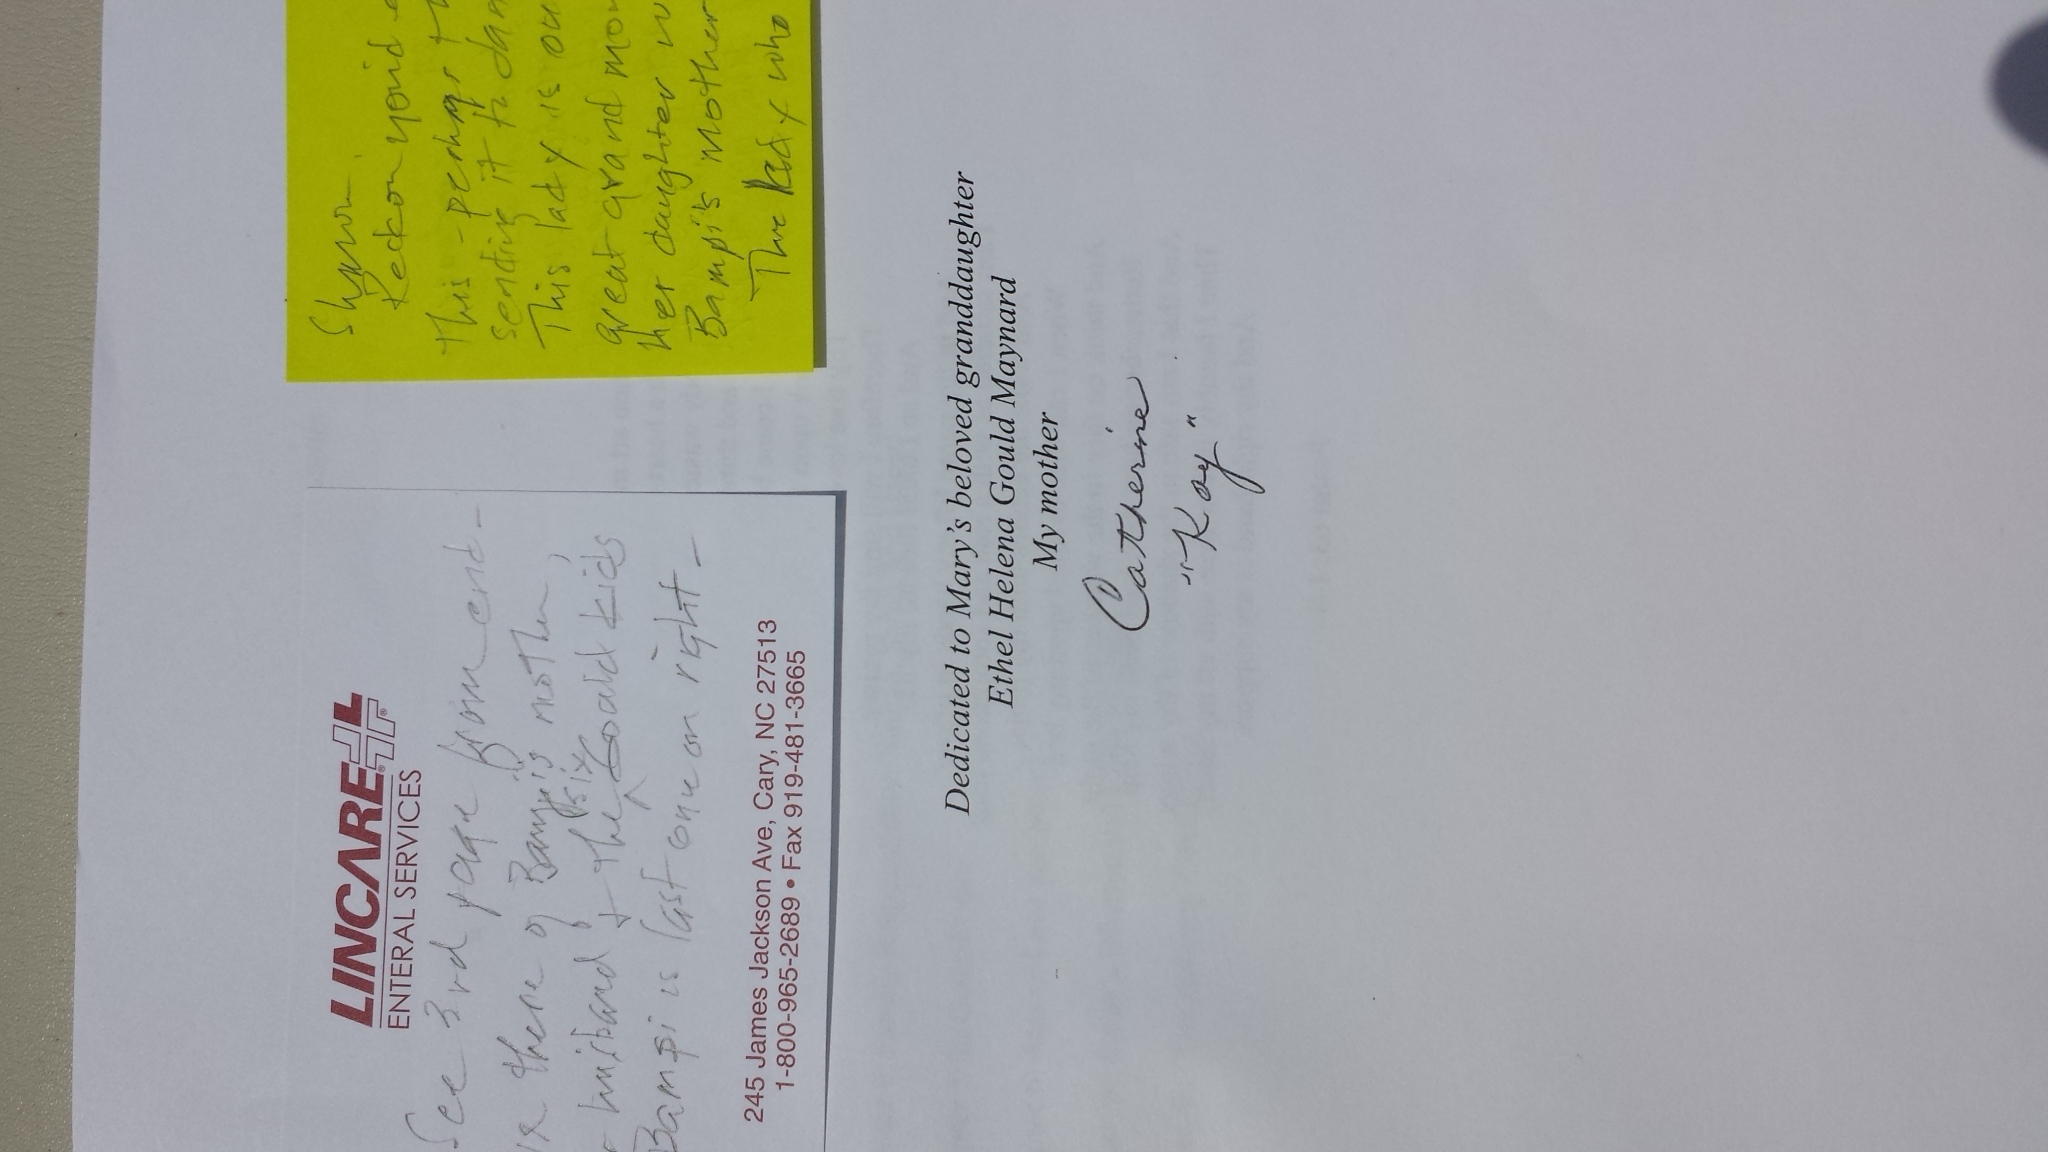 LINCARE
ENTERAL SERVICES
See 3rd page from end-
there of Bampi's mother,
husband & the six Gould kids
Bampi is last one on right-
245 James Jackson Ave, Cary, NC 27513
1-800-965-2689 • Fax 919-481-3665
Reckon you'd
This - perhaps
sending it to
This lady is
great-grand
her daughter
Bampi's mother
The lady who
Dedicated to Mary's beloved granddaughter
Ethel Helena Gould Maynard
My mother
Catherine
"Kay"